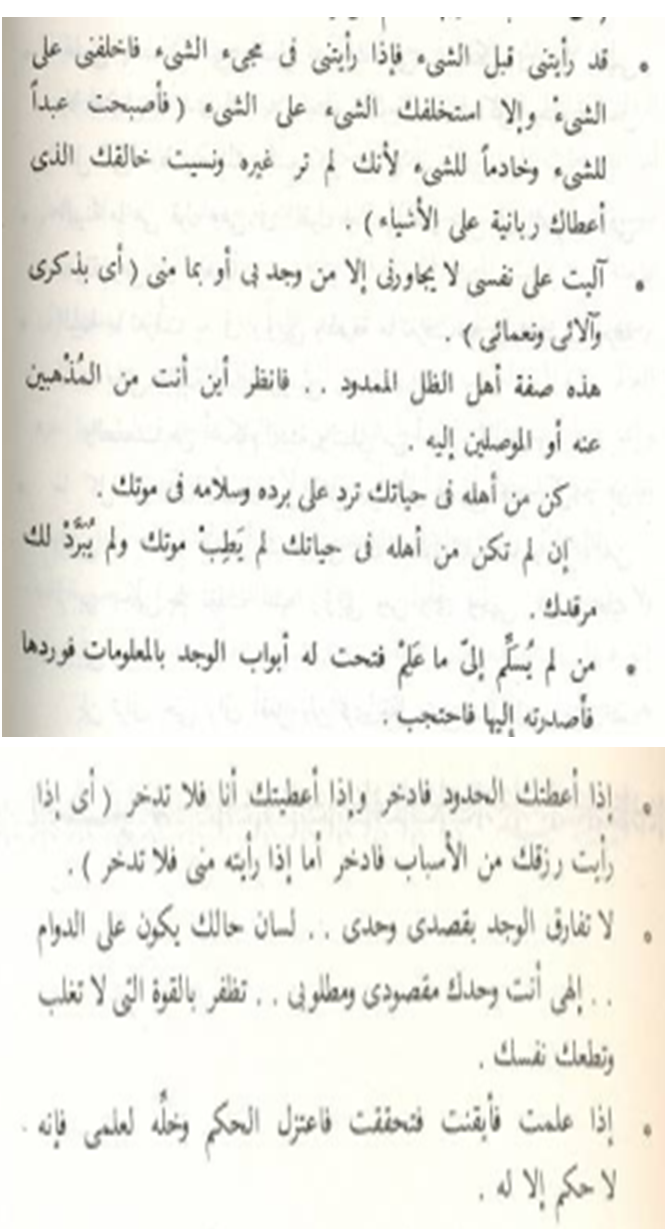 • قد رأيتنى قبل الشىء فإذا رأيتنى فى مجىء الشىء فاخلفنى على
الشىء وإلا استخلفك الشىء على الشىء ( فأصبحت عبداً
للشىء وخادماً للشىء لأنك لم تر غيره ونسيت خالقك الذى
أعطاك ربانية على الأشياء ) .
• آليت على نفسى لا يجاورنى إلا من وجد بى أو بما منى ( أى بذكرى
وآلائى ونعمائى ) .
هذه صفة أهل الظل الممدود . . فانظر أين أنت من المُذْهبين
عنه أو الموصلين إليه .
كن من أهله فى حياتك ترد على برده وسلامه فى موتك .
إن لم تكن من أهله فى حياتك لم يَطِبْ موتك ولم يُبَرَّدْ لك
مرقدك .
• من لم يُسَلِّم إلىّ ما عَلِمْ فتحت له أبواب الوجد بالمعلومات فوردها
فأصدرته إليها فاحتجب .
• إذا أعطتك الحدود فادخر وإذا أعطيتك أنا فلا تدخر ( أى إذا
رأيت رزقك من الأسباب فادخر أما إذا رأيته منى فلا تدخر ) .
• لا تفارق الوجد بقصدى وحدى . . لسان حالك يكون على الدوام
. . إلهى أنت وحدك مقصودى ومطلوبى . . تظفر بالقوة التى لا تغلب
وتطعك نفسك .
• إذا علمت فأيقنت فتحققت فاعتزل الحكم وخلِّه لعلمى فإنه
لا حكم إلا له .